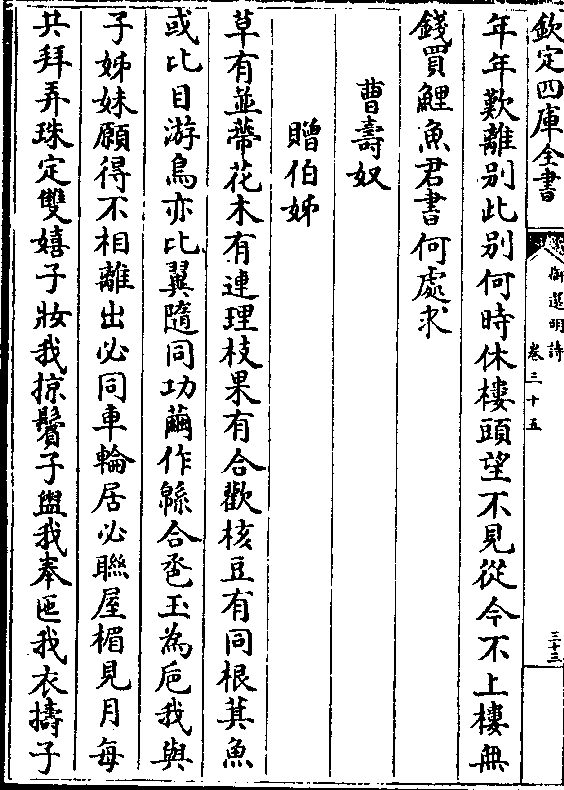 欽定四庫全書
御選明詩
卷三十五
三十三
年年歎離别此别何時休樓頭望不見從今不上樓無
錢買鯉魚君書何處求
曹壽奴
贈伯姊
草有並蔕花木有連理枝果有合歡核豆有同根萁魚
或比目游鳥亦比翼隨同功繭作緜合卺玉為巵我與
子姊妹願得不相離出必同車輪居必聯屋楣見月每
共拜弄珠定雙嬉子妝我掠鬢子盥我奉匜我衣擣子